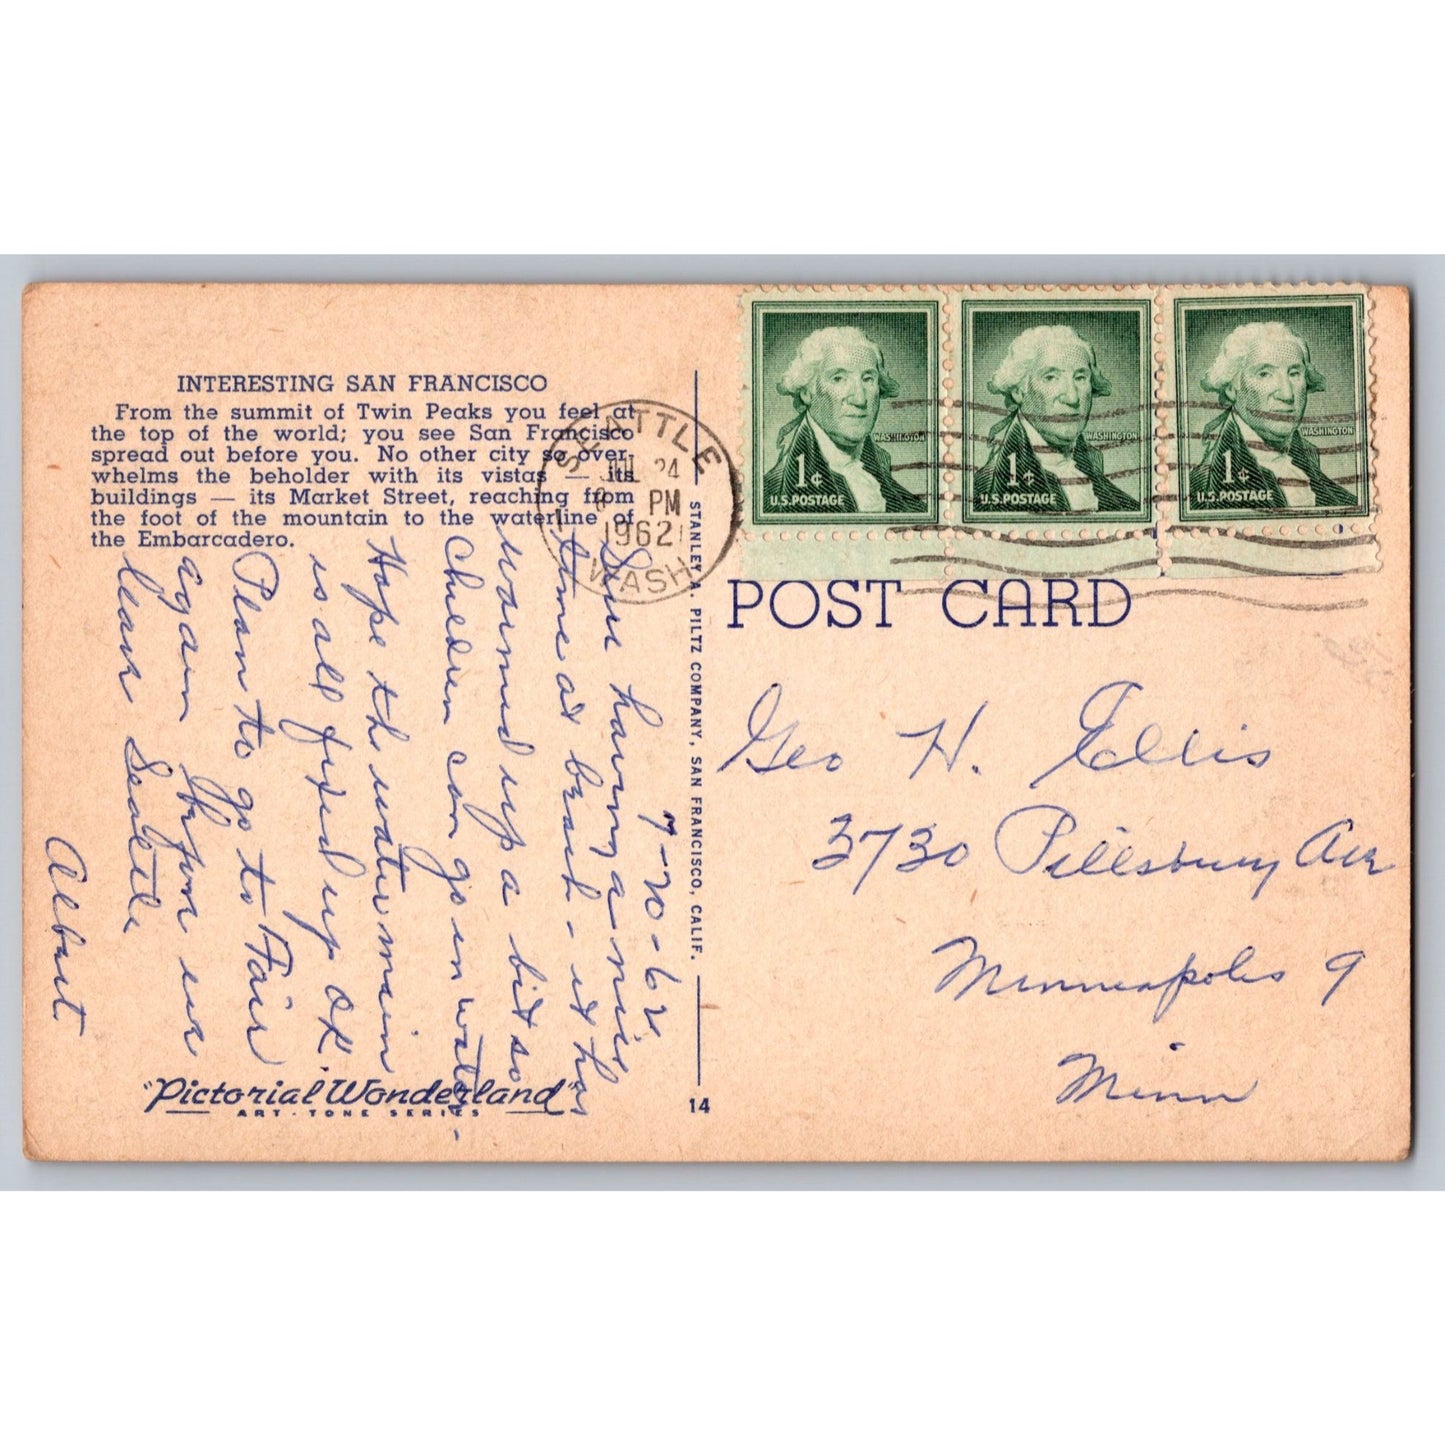 INTERESTING SAN FRANCISCO
From the summit of Twin Peaks you feel at
the top of the world; you see San Francisco
spread out before you. No other city so over-
whelms the beholder with its vistas — its
buildings — its Market Street, reaching from
the foot of the mountain to the waterline of
the Embarcadero.
7-20-62
Sure having a nice
time at beach - it has
warmed up a bit so
Children can go in water-
Hope th water main
is all fixed up OK.
Plan to go to Fair
again before we
leave Seattle
Albert
"Pictorial Wonderland"
ART-TONE SERIES
STANLEY A. PILTZ COMPANY, SAN FRANCISCO, CALIF.
14
SEATTLE
JUL 24
PM
1962
WASH
WASHINGTON
1¢
U.S. POSTAGE
WASHINGTON
1¢
U.S. POSTAGE
WASHINGTON
1¢
U.S. POSTAGE
POST CARD
Geo H. Ellis
3730 Pillsbury Ave
Minneapolis 9
Minn